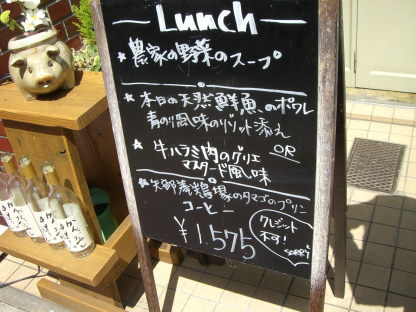 Lunch
★農家の野菜のスープ
★本日の天然鮮魚のポワレ
青のり風味のリゾット添え
OR
★牛ハラミ肉のグリエ
マスタード風味
★矢部養鶏場のタマゴのプリン
コーヒー
¥1.575
クレジット
不可!
SORRY